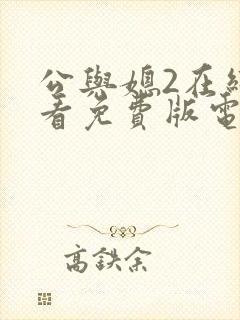 公與媳2在線
看免費版電
高鉄余